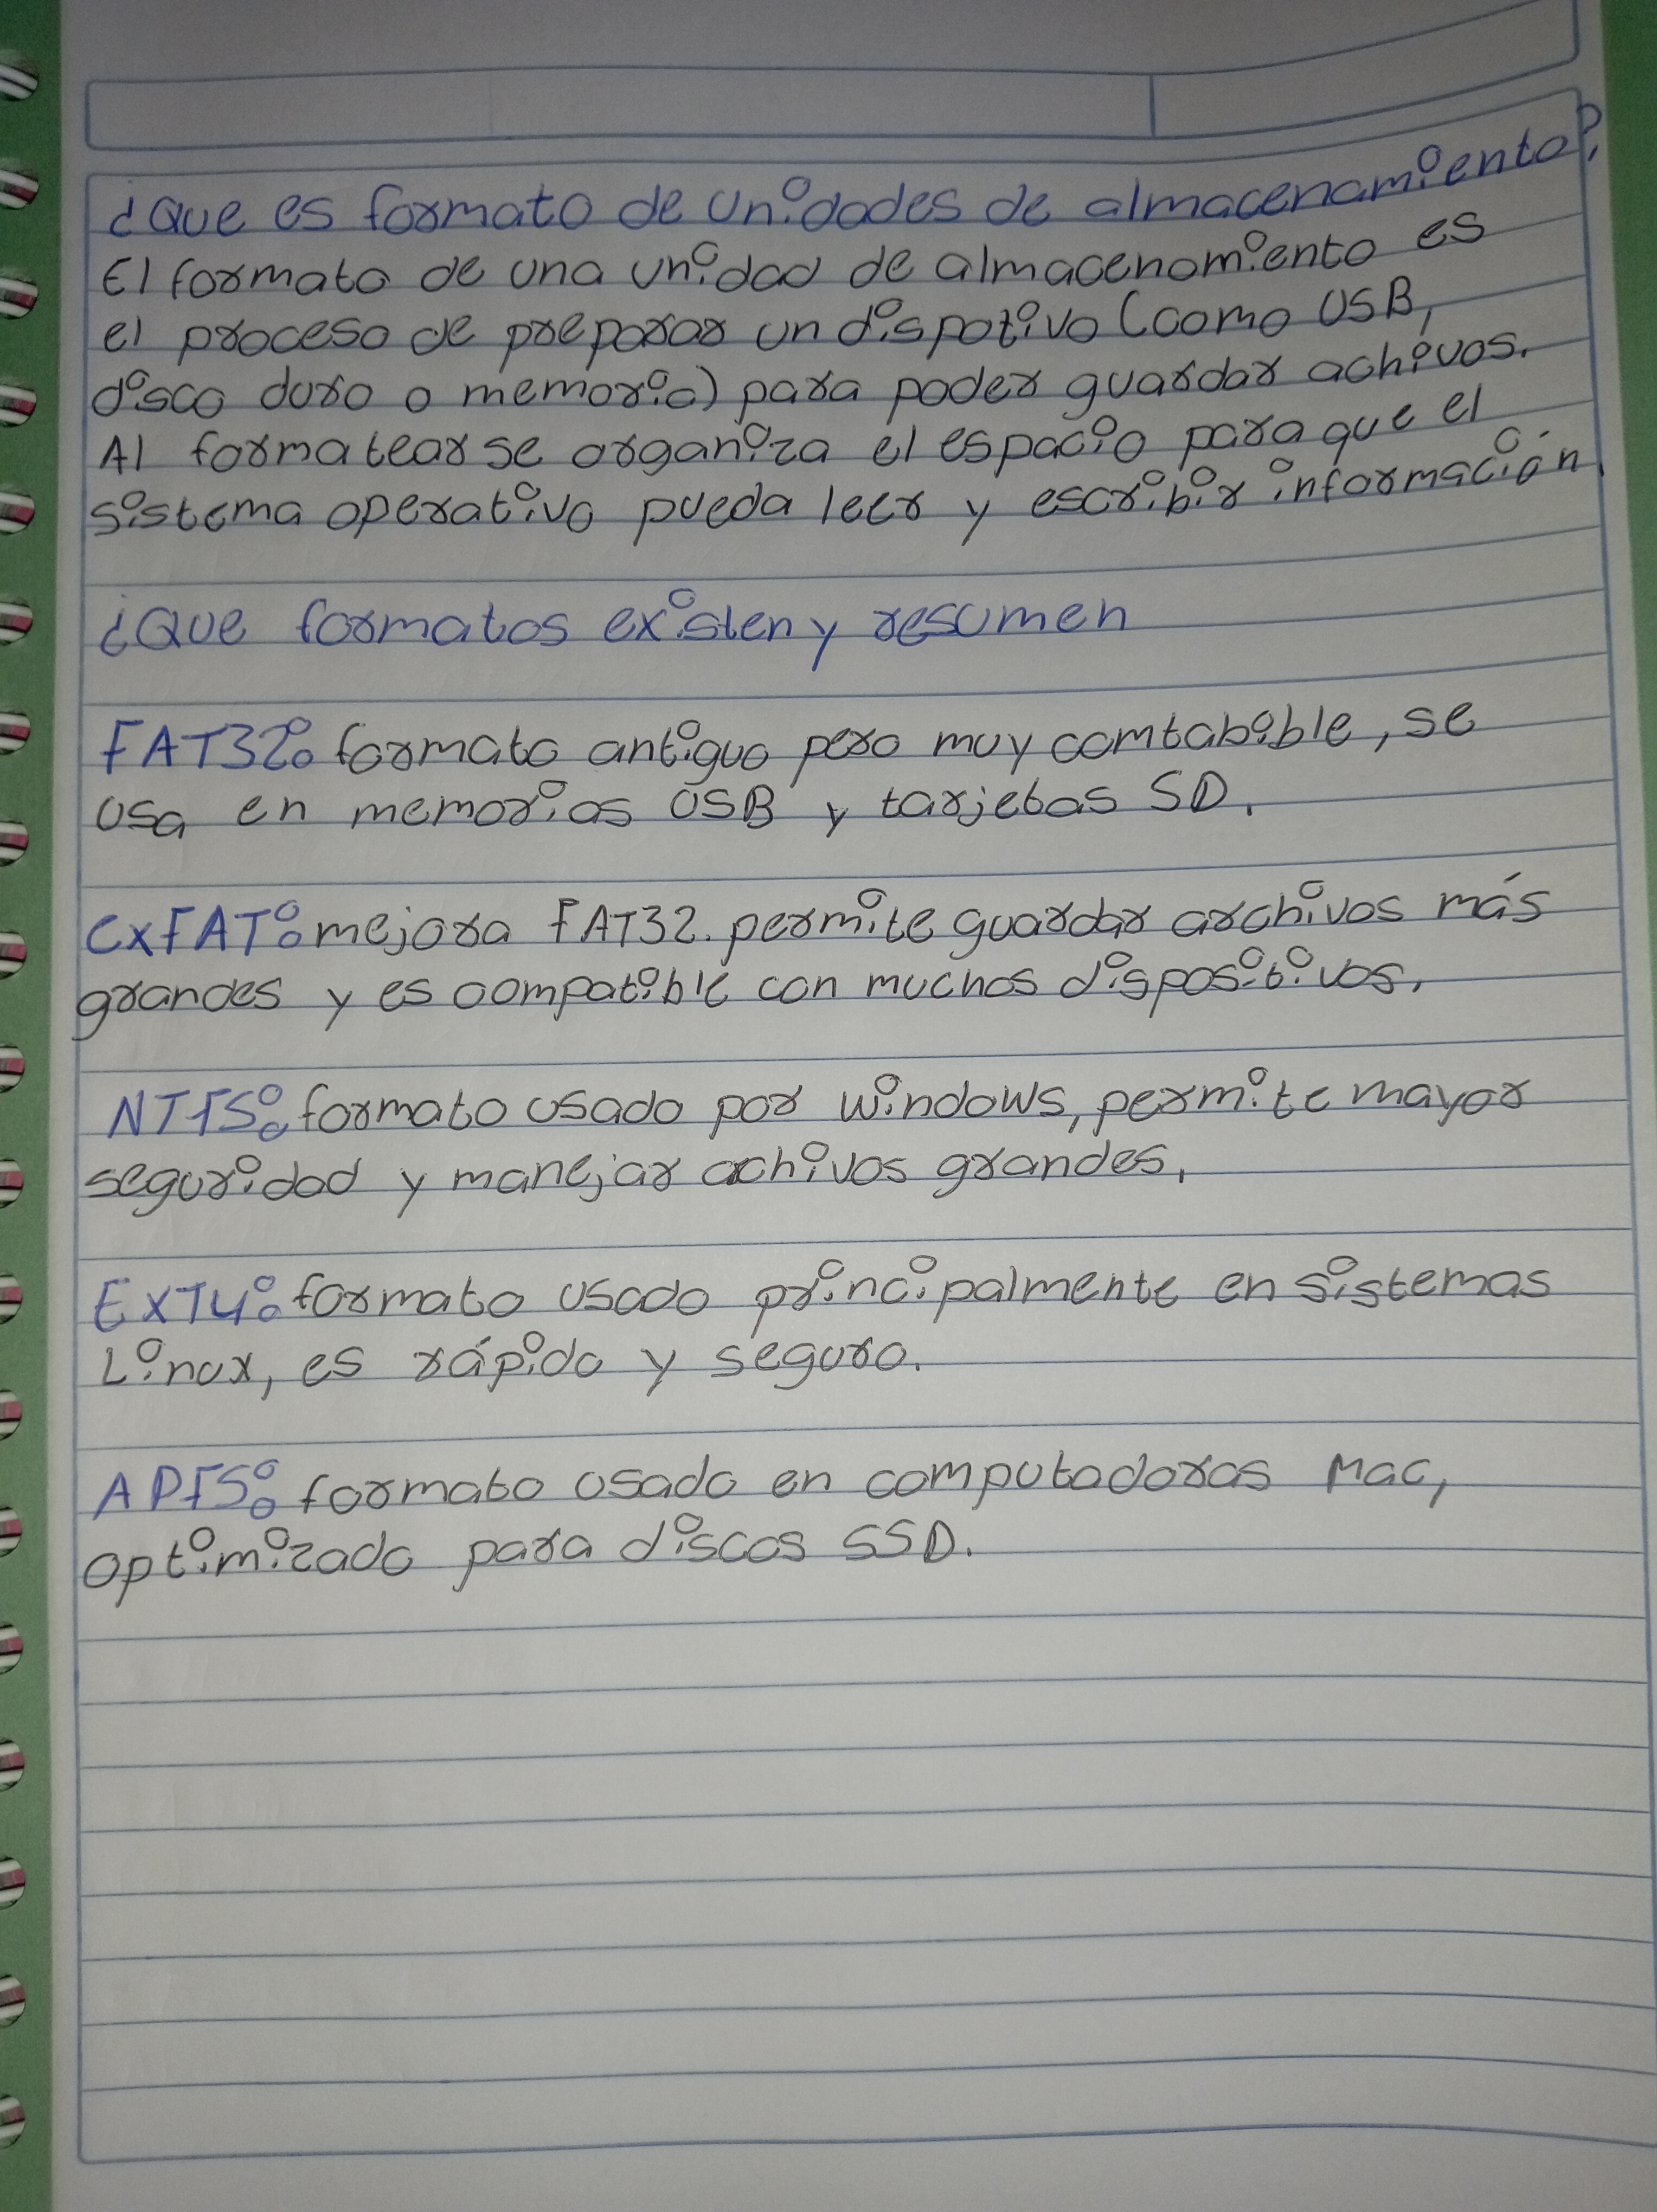 ¿Que es formato de unidades de almacenamiento?
El formato de una unidad de almacenamiento es
el proceso de preparar un dispotivo (como USB,
disco duro o memoria) para poder guardar achivos.
Al formatear se organiza el espacio para que el
sistema operativo pueda leer y escribir información.
¿Que formatos existen y resumen
FAT32: formato antiguo pero muy comtabible, se
usa en memorias USB y tarjetas SD.
exFAT: mejora FAT32. permite guardar archivos más
grandes y es compatible con muchos dispositivos.
NTFS: formato usado por windows, permite mayor
seguridad y manejar achivos grandes.
EXT4: formato usado principalmente en sistemas
Linux, es rápido y seguro.
APFS: formato usado en computadoras Mac,
optimizado para discos SSD.